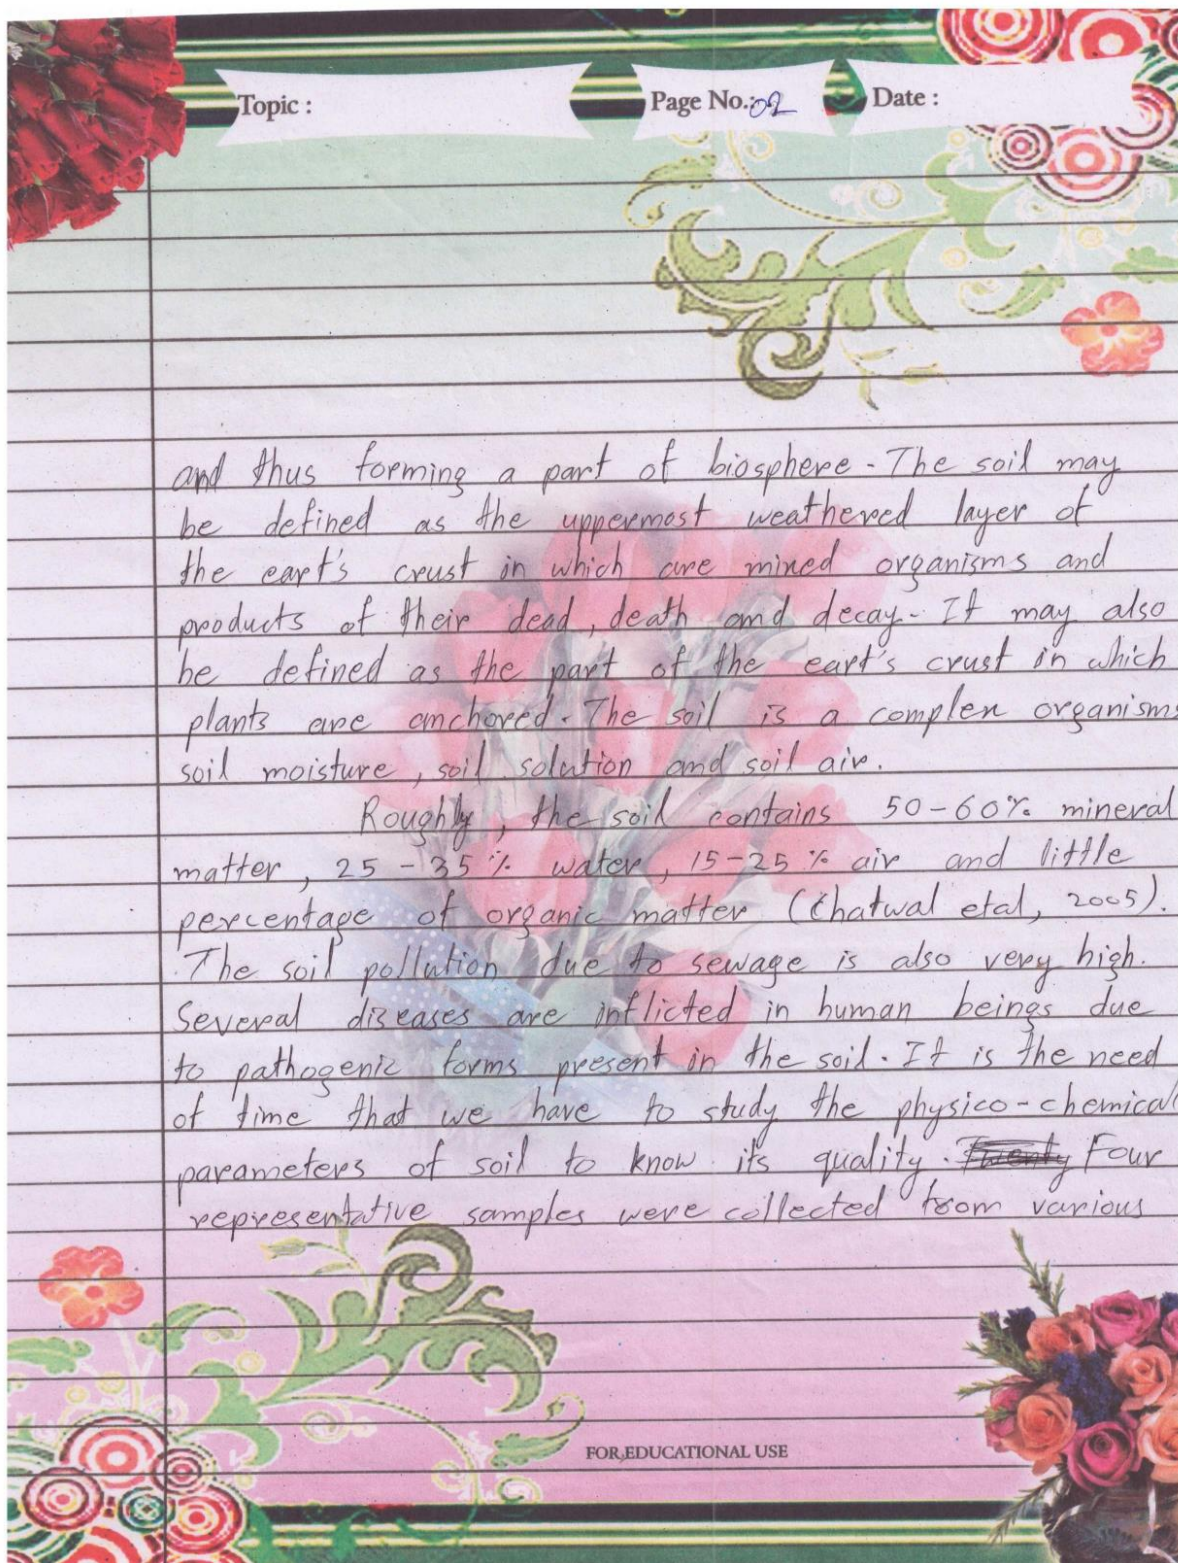 Topic :
Page No.: 02
Date :
and thus forming a part of biosphere. The soil may
be defined as the uppermost weathered layer of
the eart's crust in which are mined organisms and
products of their dead, death and decay. It may also
be defined as the part of the eart's crust in which
plants are anchored. The soil is a complen organisms
soil moisture, soil solution and soil air.
Roughly, the soil contains 50-60% mineral
matter, 25-35% water, 15-25% air and little
percentage of organic matter (Chatwal etal, 2005).
The soil pollution due to sewage is also very high.
Several diseases are inflicted in human beings due
to pathogenic forms present in the soil. It is the need
of time that we have to study the physico-chemical
parameters of soil to know its quality. Twenty Four
representative samples were collected from various
FOR EDUCATIONAL USE